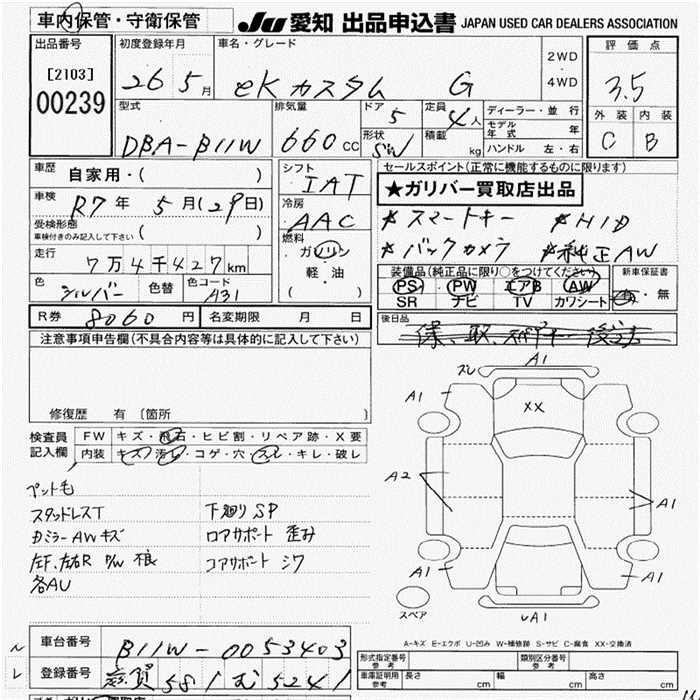 車内保管・守衛保管
JU 愛知 出品申込書 JAPAN USED CAR DEALERS ASSOCIATION
出品番号 [2103] 00239
初度登録年月 26 5月
車名・グレード eKカスタム G
2WD・4WD
評価点 3.5
外装 C 内装 B
型式 DBA-B11W
排気量 660cc
ドア 5 定員 4人
形状 SW 積載 kg
ディーラー・並行
モデル年式 年
ハンドル 左・右
車歴 自家用・( )
車検 R7年 5月(29日)
受検形態 車検付きのみ記入して下さい ( )
走行 7万4千427km
色 シルバー 色替 色コード A31
シフト IAT
冷房 AAC
燃料 ガソリン 軽・油 ( )
セールスポイント(正常に機能するものに限ります)
★ガリバー買取店出品
*スマートキー *HID
*バックカメラ *純正AW
装備品(純正品に限り○をつけてください)
PS PW エアB AW
SR ナビ TV カワシート
新車保証書 有・無
R券 8060円 名変期限 月 日
後日品 保、取、
注意事項申告欄(不具合内容等は具体的に記入して下さい)
修復歴 有 〔箇所 〕
検査員記入欄
FW キズ・飛石・ヒビ割・リペア跡・X要
内装 キズ・汚れ・コゲ・穴・スレ・キレ・破レ
ペット毛
スタッドレスT 下廻りSP
カミラーAWキズ ロアサポート 歪み
左F、左右R P/W 不良 コアサポート シワ
各AU
スレ A1
A1 XX A1
A2 A1
A1 A1
スペア A1
A-キズ E-エクボ U-凹み W-補修跡 S-サビ C-腐食 XX-交換済
車台番号 B11W-0053403
登録番号 滋賀 581 む 5241
形式指定番号 参考 類別区分番号 参考
車庫証明用 参考 長さ cm 幅 cm 高さ cm